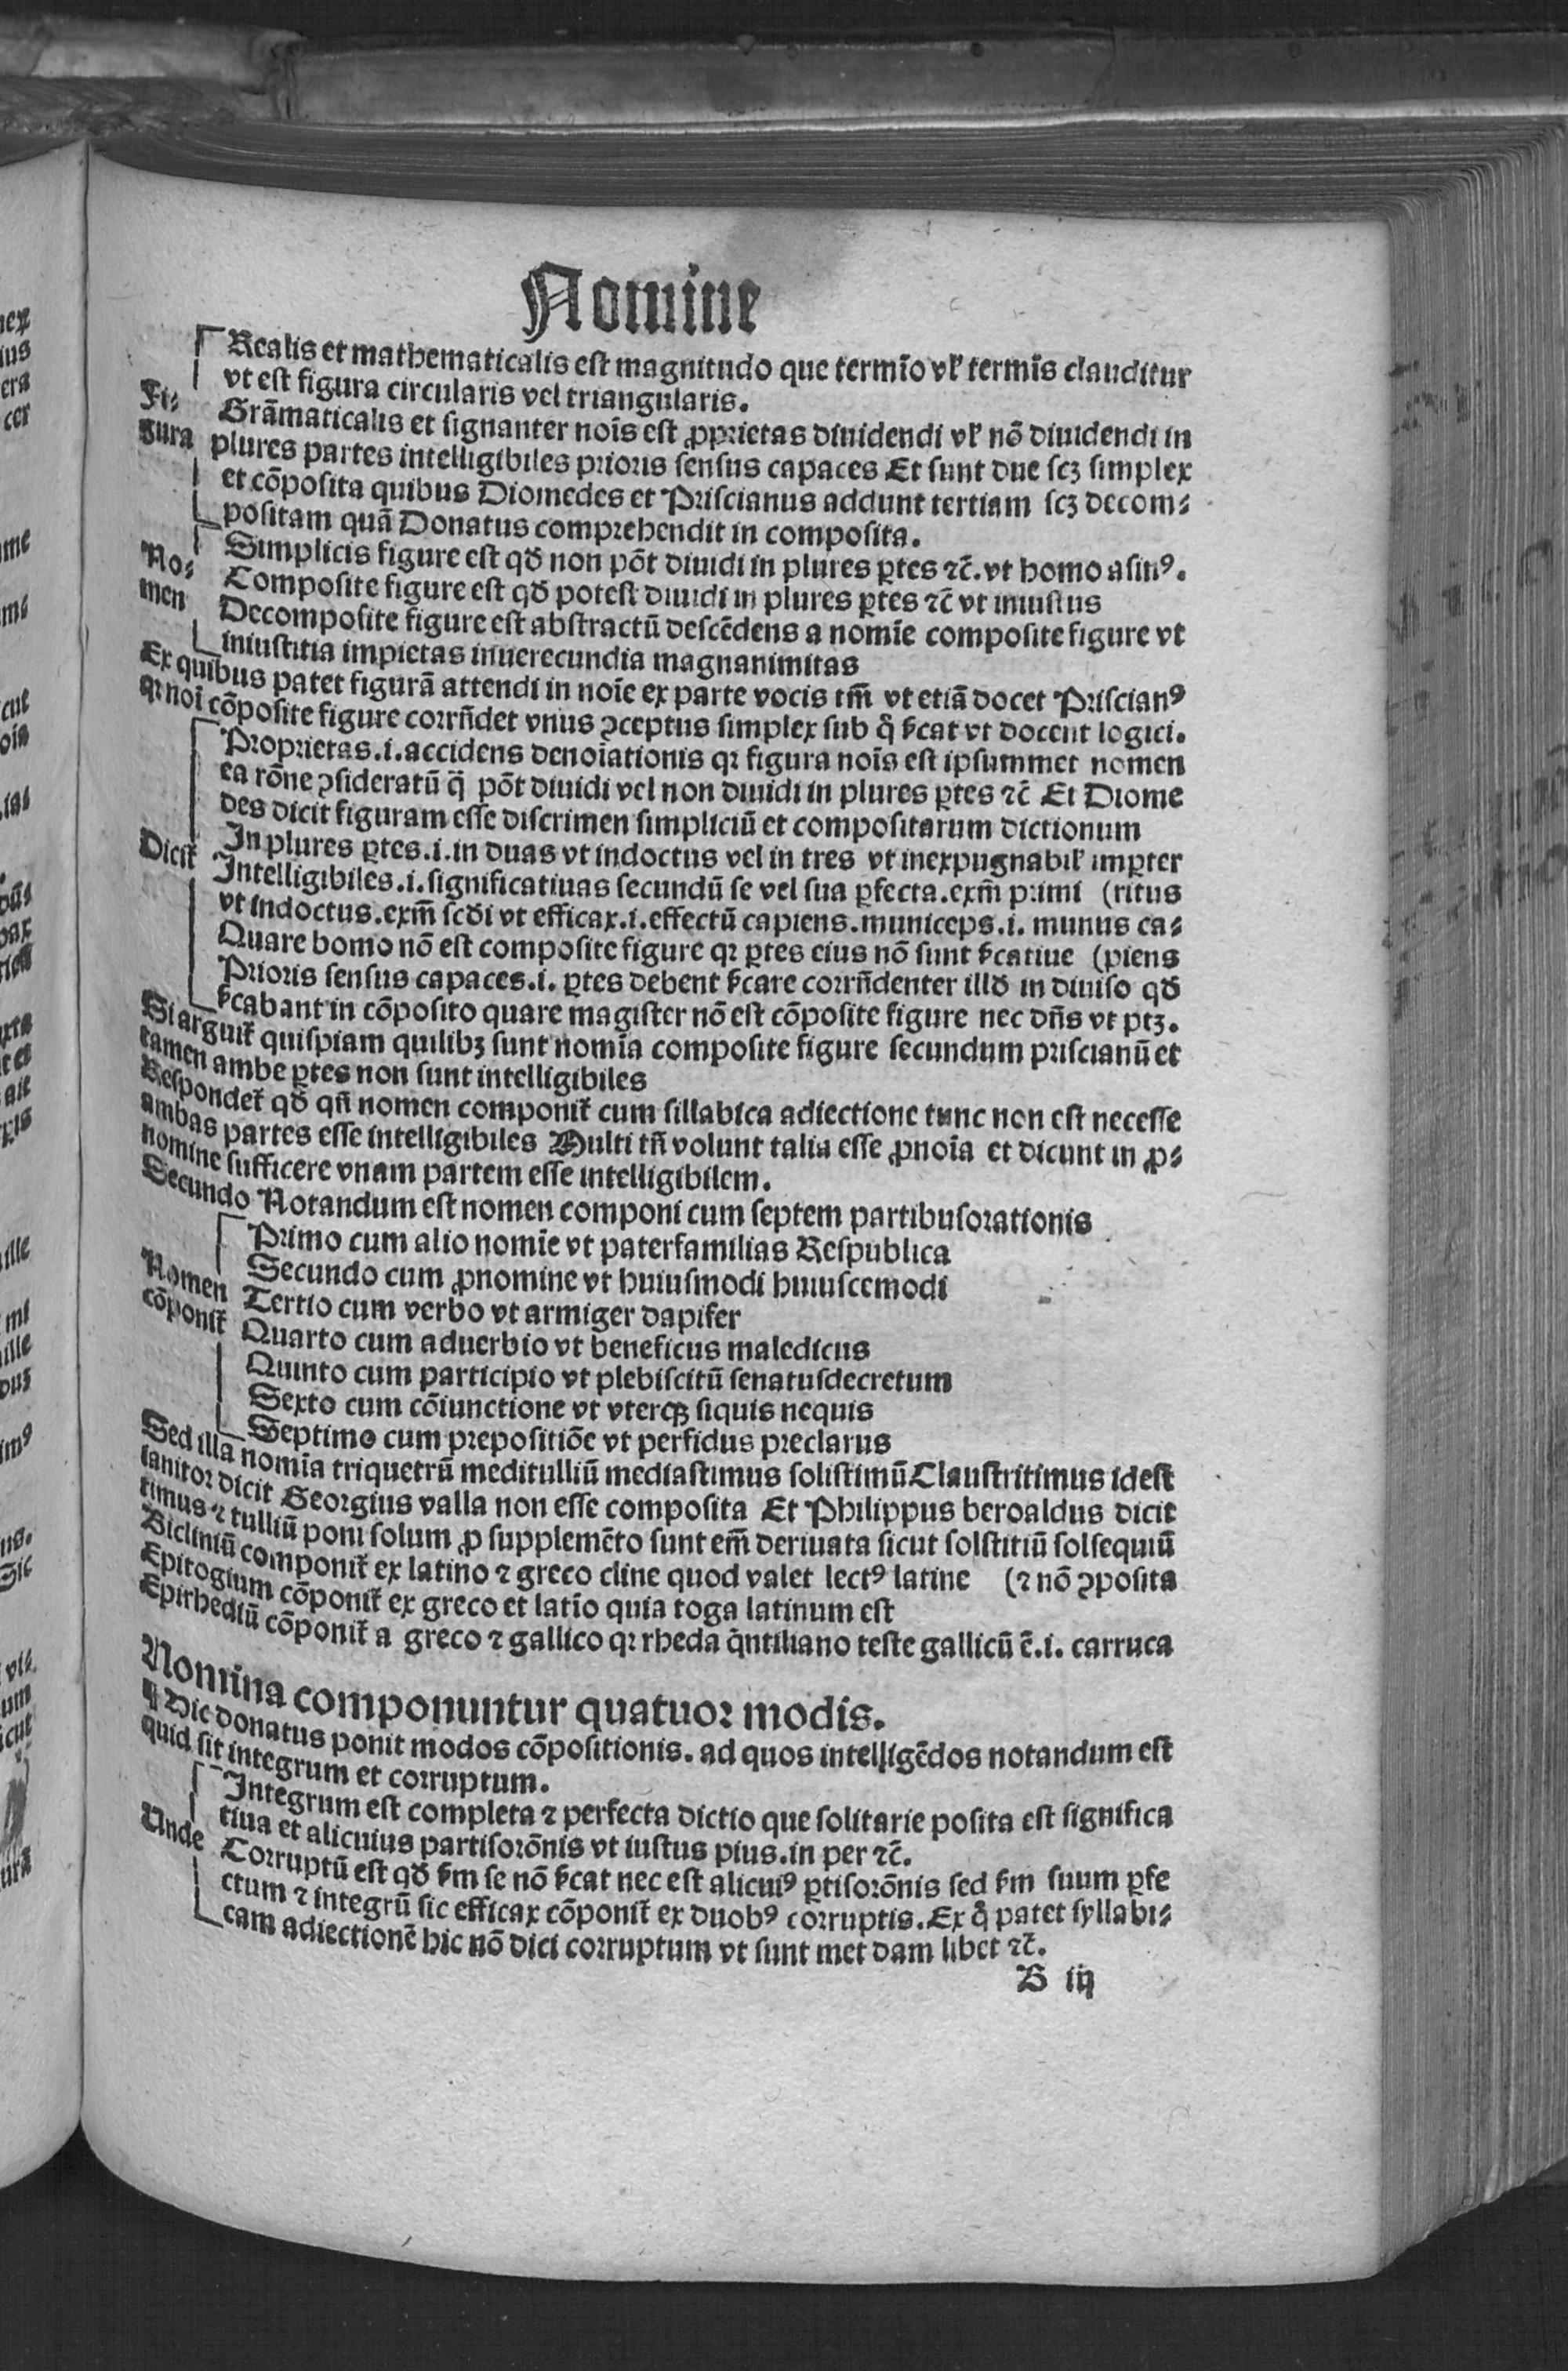 Nomine
Realis et mathematicalis est magnitudo que termīo vꝉ termīs clauditur
vt est figura circularis vel triangularis.
Fi⸗ Grāmaticalis et signanter noīs est ꝓprietas diuidendi vꝉ nō diuidendi in
gura plures partes intelligibiles prioris sensus capaces Et sunt due scꝫ simplex
et cōposita quibus Diomedes et Priscianus addunt tertiam scꝫ decom⸗
positam quā Donatus comprehendit in composita.
Simplicis figure est qđ non pōt diuidi in plures ꝑtes ⁊c̄. vt homo asinꝰ.
No⸗ Composite figure est qđ potest diuidi in plures ꝑtes ⁊c̄ vt iniustus
men Decomposite figure est abstractū descēdens a nomīe composite figure vt
iniustitia impietas inuerecundia magnanimitas
Ex quibus patet figurā attendi in noīe ex parte vocis tm̄ vt etiā docet Priscianꝰ
qꝛ noī cōposite figure corrn̄det vnius ꝯceptus simplex sub q̊ ẜcat vt docent logici.
Proprietas.i.accidens denoīationis qꝛ figura noīs est ipsummet nomen
ea rōne ꝯsideratū q̄ pōt diuidi vel non diuidi in plures ꝑtes ⁊c̄ Et Diome
des dicit figuram esse discrimen simpliciū et compositarum dictionum
Dicit᷑ In plures ꝑtes.i.in duas vt indoctus vel in tres vt inexpugnabiꝉ imꝑter
Intelligibiles.i.significatiuas secundū se vel sua ꝑfecta.exm̄ primi (ritus
vt indoctus.exm̄ scđi vt efficax.i.effectū capiens.municeps.i. munus ca⸗
Quare homo nō est composite figure qꝛ ꝑtes eius nō sunt ẜcatiue (piens
Prioris sensus capaces.i. ꝑtes debent ẜcare corrn̄denter illđ in diuiso qđ
ẜcabant in cōposito quare magister nō est cōposite figure nec dn̄s vt ptꝫ.
Si arguit᷑ quispiam quilibꝫ sunt nomīa composite figure secundum priscianū et
tamen ambe ꝑtes non sunt intelligibiles
Respondet᷑ qđ qn̄ nomen componit᷑ cum sillabica adiectione tunc non est necesse
ambas partes esse intelligibiles Multi tn̄ volunt talia esse ꝓnoīa et dicunt in ꝓ⸗
nomine sufficere vnam partem esse intelligibilem.
Secundo Notandum est nomen componi cum septem partibusorationis
Primo cum alio nomīe vt paterfamilias Respublica
Secundo cum ꝓnomine vt huiusmodi huiuscemodi
Nomen Tertio cum verbo vt armiger dapifer
cōponit᷑ Quarto cum aduerbio vt beneficus maledicus
Quinto cum participio vt plebiscitū senatusdecretum
Sexto cum cōiunctione vt vterqꝫ siquis nequis
Septimo cum prepositiōe vt perfidus preclarus
Sed illa nomīa triquetrū meditulliū mediastimus solistimū Claustritimus idest
ianitor dicit Georgius valla non esse composita Et Philippus beroaldus dicit
timus ⁊ tulliū poni solum ꝓ supplemēto sunt em̄ deriuata sicut solstitiū solsequiū
Bicliniū componit᷑ ex latino ⁊ greco cline quod valet lectꝰ latine (⁊ nō ꝯposita
Epitogium cōponit᷑ ex greco et latīo quia toga latinum est
Epirhediū cōponit᷑ a greco ⁊ gallico qꝛ rheda q̇ntiliano teste gallicū ē.i. carruca
Nomina componuntur quatuor modis.
¶ Hic donatus ponit modos cōpositionis. ad quos intelligēdos notandum est
quid sit integrum et corruptum.
Integrum est completa ⁊ perfecta dictio que solitarie posita est significa
Unde tiua et alicuius partisorōnis vt iustus pius.in per ⁊c̄.
Corruptū est qđ ẜm se nō ẜcat nec est alicuiꝰ ꝑtisorōnis sed ẜm suum ꝑfe
ctum ⁊ integrū sic efficax cōponit᷑ ex duobꝰ corruptis.Ex q̊ patet syllabi⸗
cam adiectionē hic nō dici corruptum vt sunt met dam libet ⁊c̄.
B iij